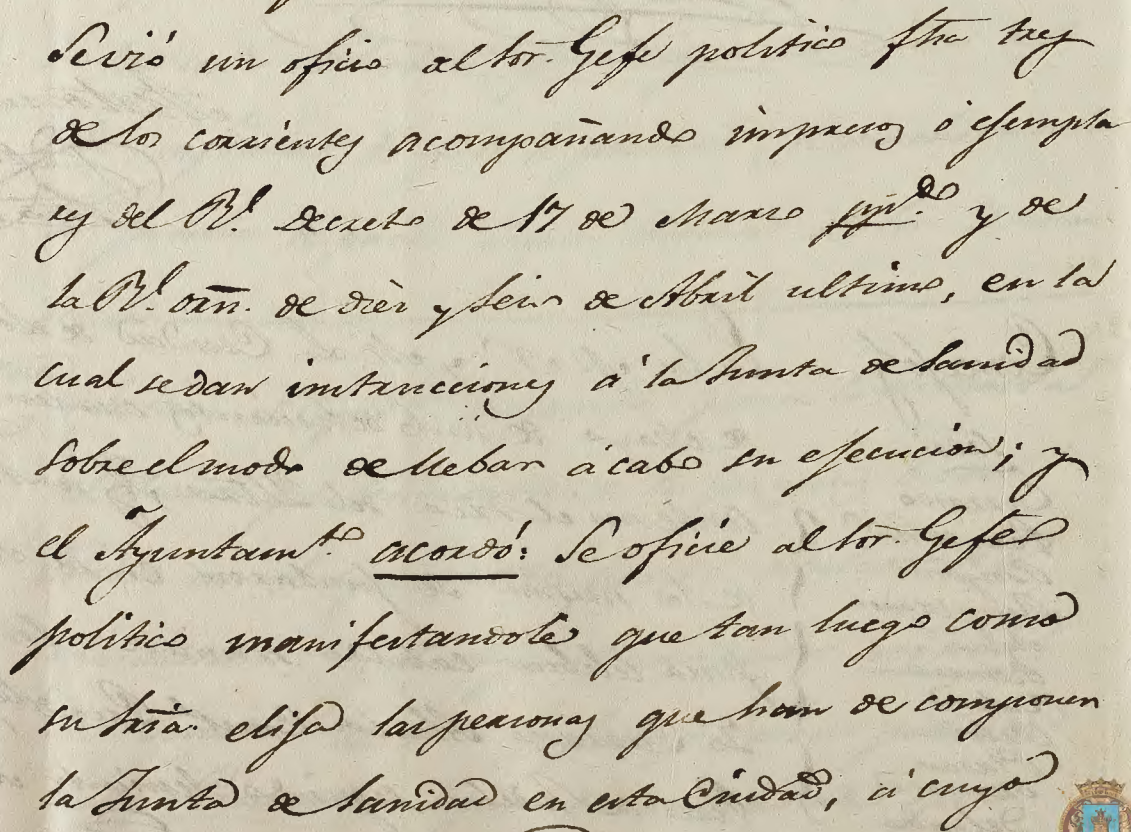 Se vió un oficio al Sor. Gefe politico fha tres
de los corrientes acompañando impresos ó ejempla
res del Rl. Decreto de 17 de Marzo y de
la Rl. orñ. de diez y seis de Abril ultimo, en la
cual se dan instrucciones á la Junta de Sanidad
sobre el modo de llebar ácabo su ejecucion; y
el Ayuntamto. acordó: Se oficie al Sor. Gefe
politico manifestandole que tan luego como
su Sria. elija las personas que han de componer
la Junta de Sanidad en esta Ciudad, á cuyo